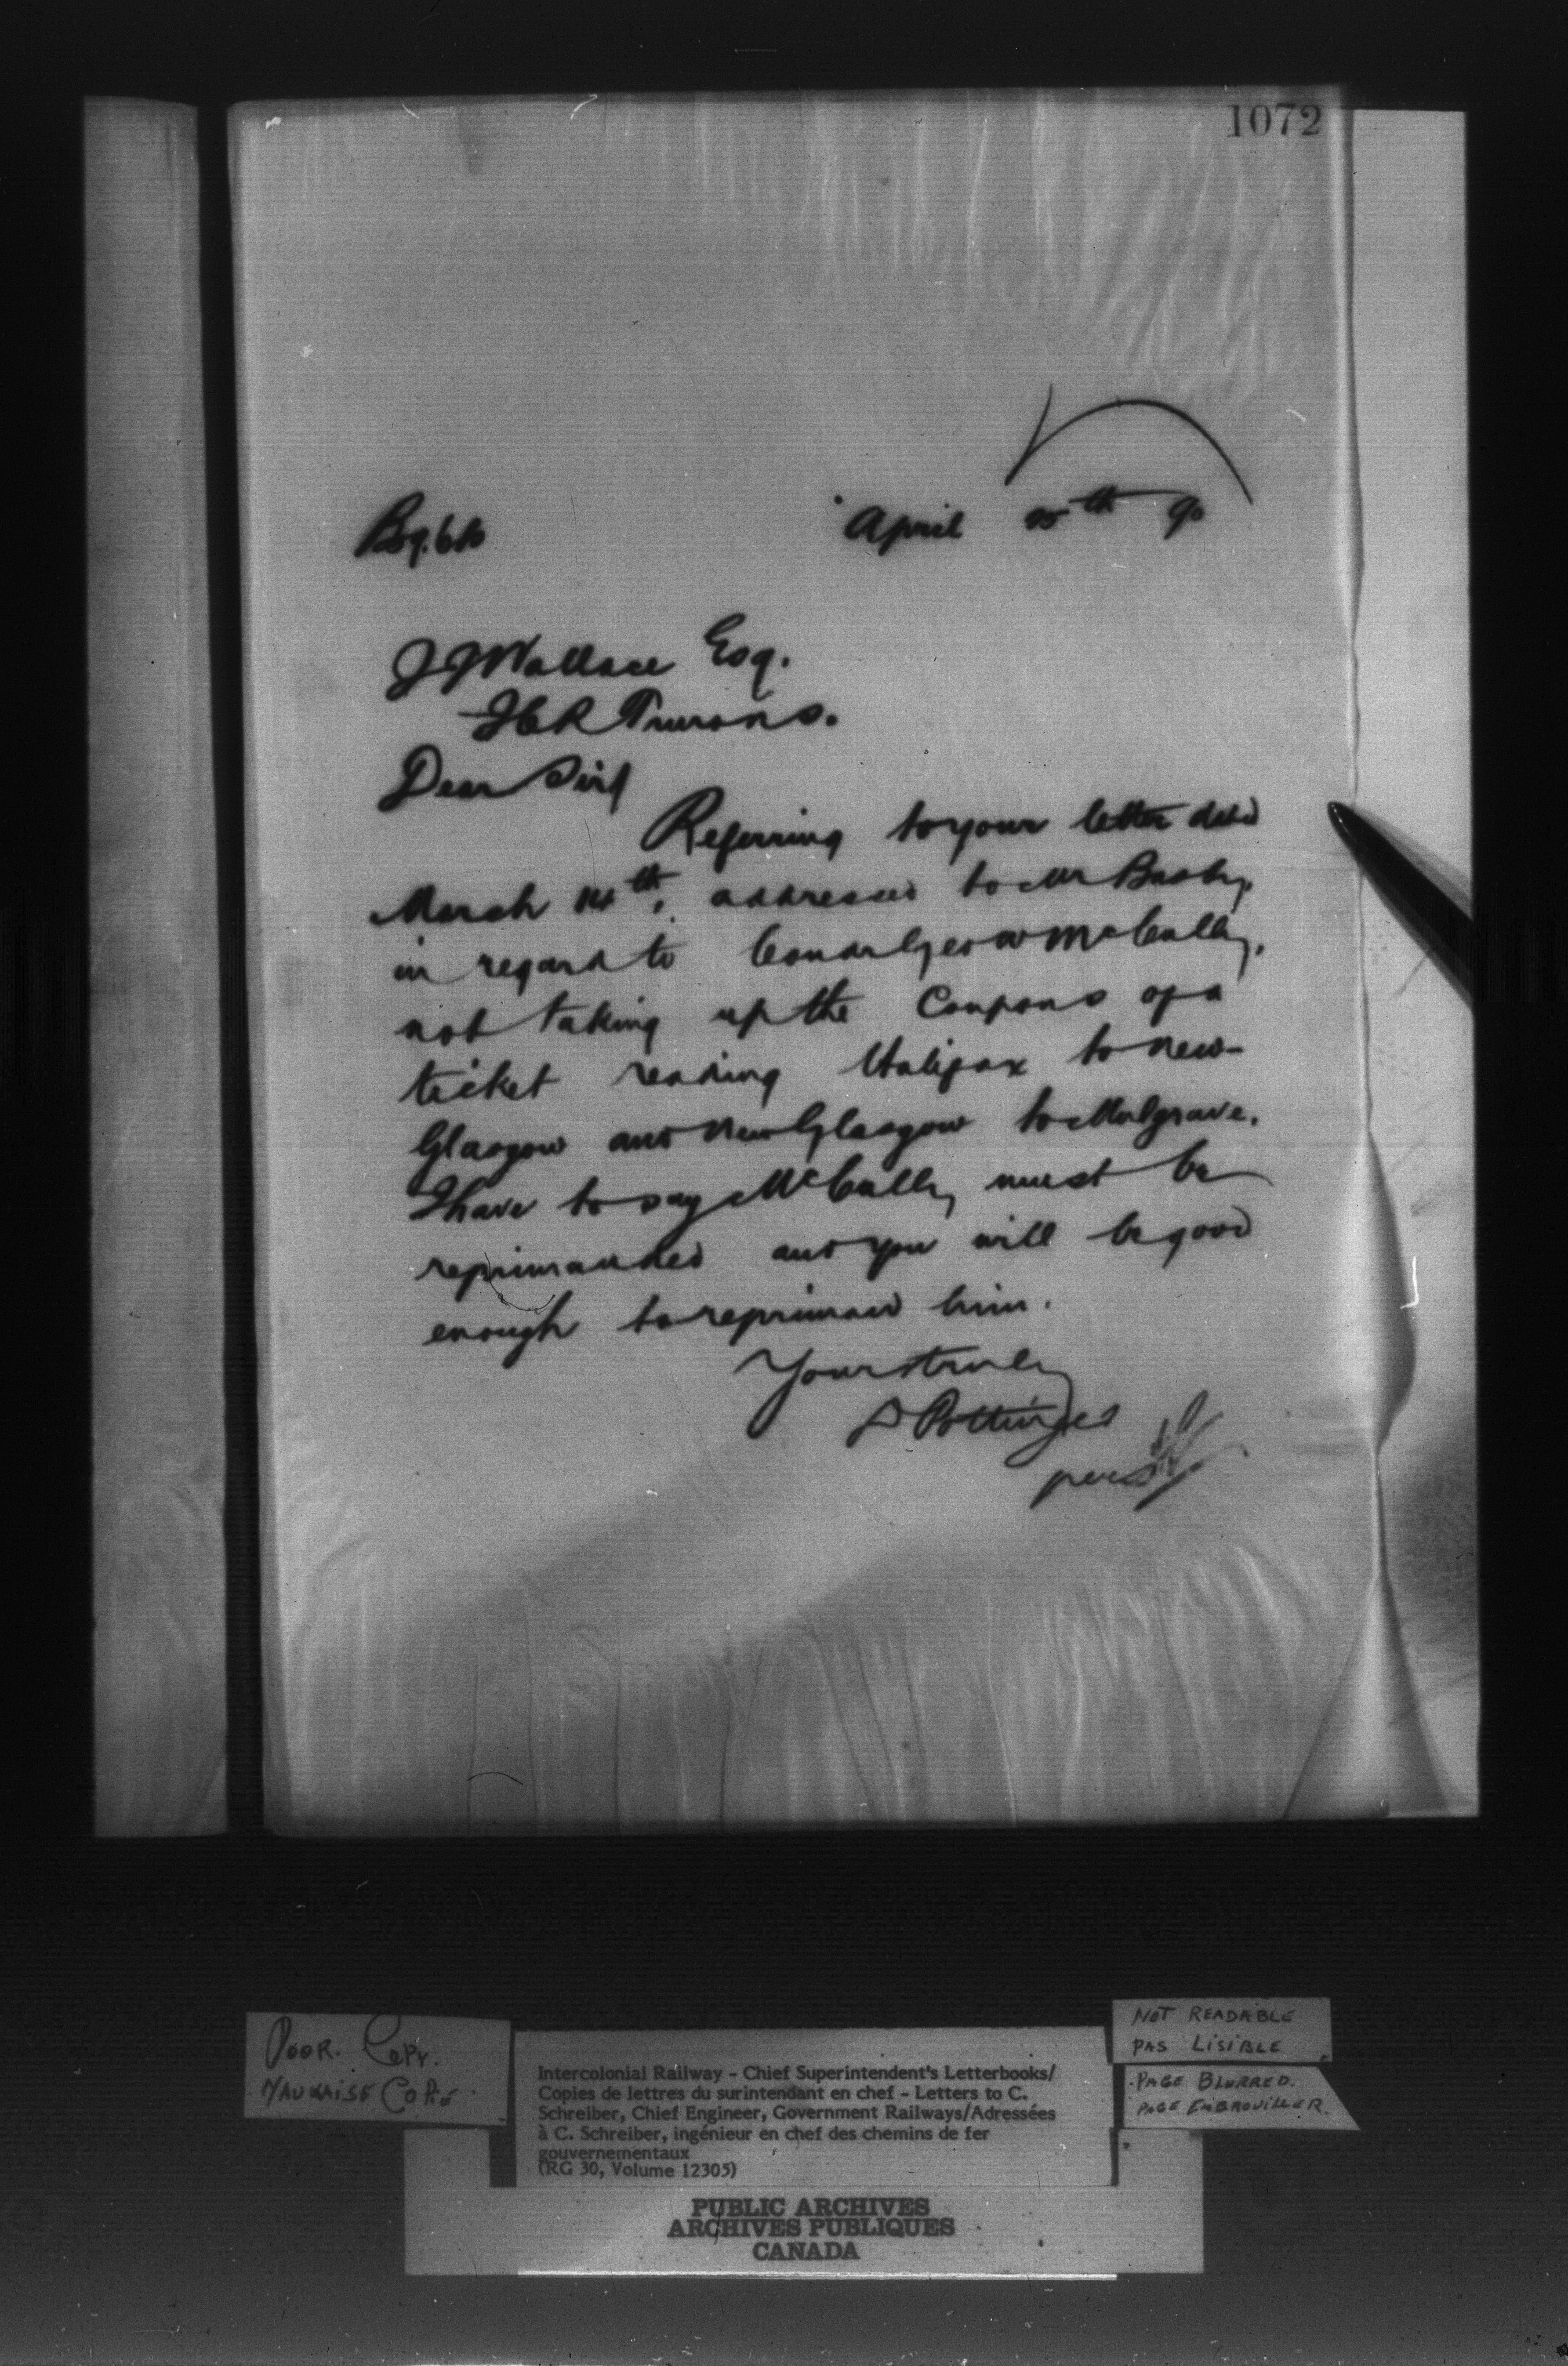 1072
April th 90
J J Wallace Esq.
ICR Truro N S.
Dear Sir
Referring to your letter dated
March 14th, addressed to Mr Busby,
in regard to Condr Geo W McCully,
not taking up the Coupons of a
ticket reading Halifax to New-
Glasgow and New Glasgow to Mulgrave.
I have to say McCully must be
reprimanded and you will be good
enough to reprimand him.
Yours truly
D Pottinger
per
POOR. COPY.
MAUVAISE COPIE
Intercolonial Railway - Chief Superintendent's Letterbooks/
Copies de lettres du surintendant en chef - Letters to C.
Schreiber, Chief Engineer, Government Railways/Adressées
à C. Schreiber, ingénieur en chef des chemins de fer
gouvernementaux
(RG 30, Volume 12305)
NOT READABLE
PAS LISIBLE
PAGE BLURRED.
PAGE EMBROUILLER.
PUBLIC ARCHIVES
ARCHIVES PUBLIQUES
CANADA